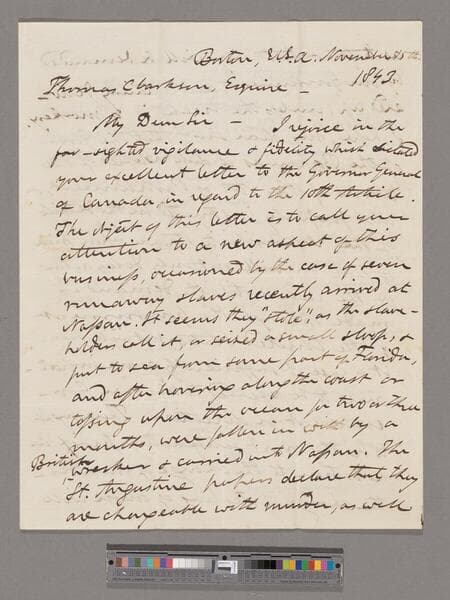 Boston, U.S.A. November 15th
1843.
Thomas Clarkson, Esquire —
My Dear Sir — I rejoice in the
far-sighted vigilance & fidelity which dictated
your excellent letter to the Governor General
of Canada, in regard to the 10th Article.
The object of this letter is to call your
attention to a new aspect of this
business, occasioned by the case of seven
runaway slaves recently arrived at
Nassau. It seems they "stole", as the slave-
holders call it, or seized a small sloop, &
put to sea from some part of Florida,
and after hovering along the coast or
tossing upon the ocean for two or three
months, were fallen in with by a
British
wrecker & carried into Nassau. The
St. Augustine papers declare that they
are chargeable with murder, as well